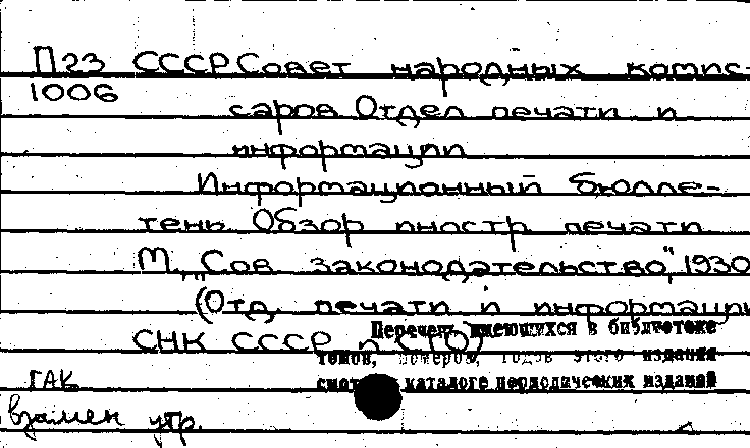 П23 СССР Совет народных комис-
1006
саров Отдел печати и
информации
Информационный бюлле-
тень Обзор иностр печати
М., „Сов законодательство", 1930
(Отд. печати и информации
СНК СССР и СТО)
Перечень имеющихся в библиотеке
томов, номеров, годов этого издания
смотри в каталоге периодических изданий
ГАК
взамен утр.